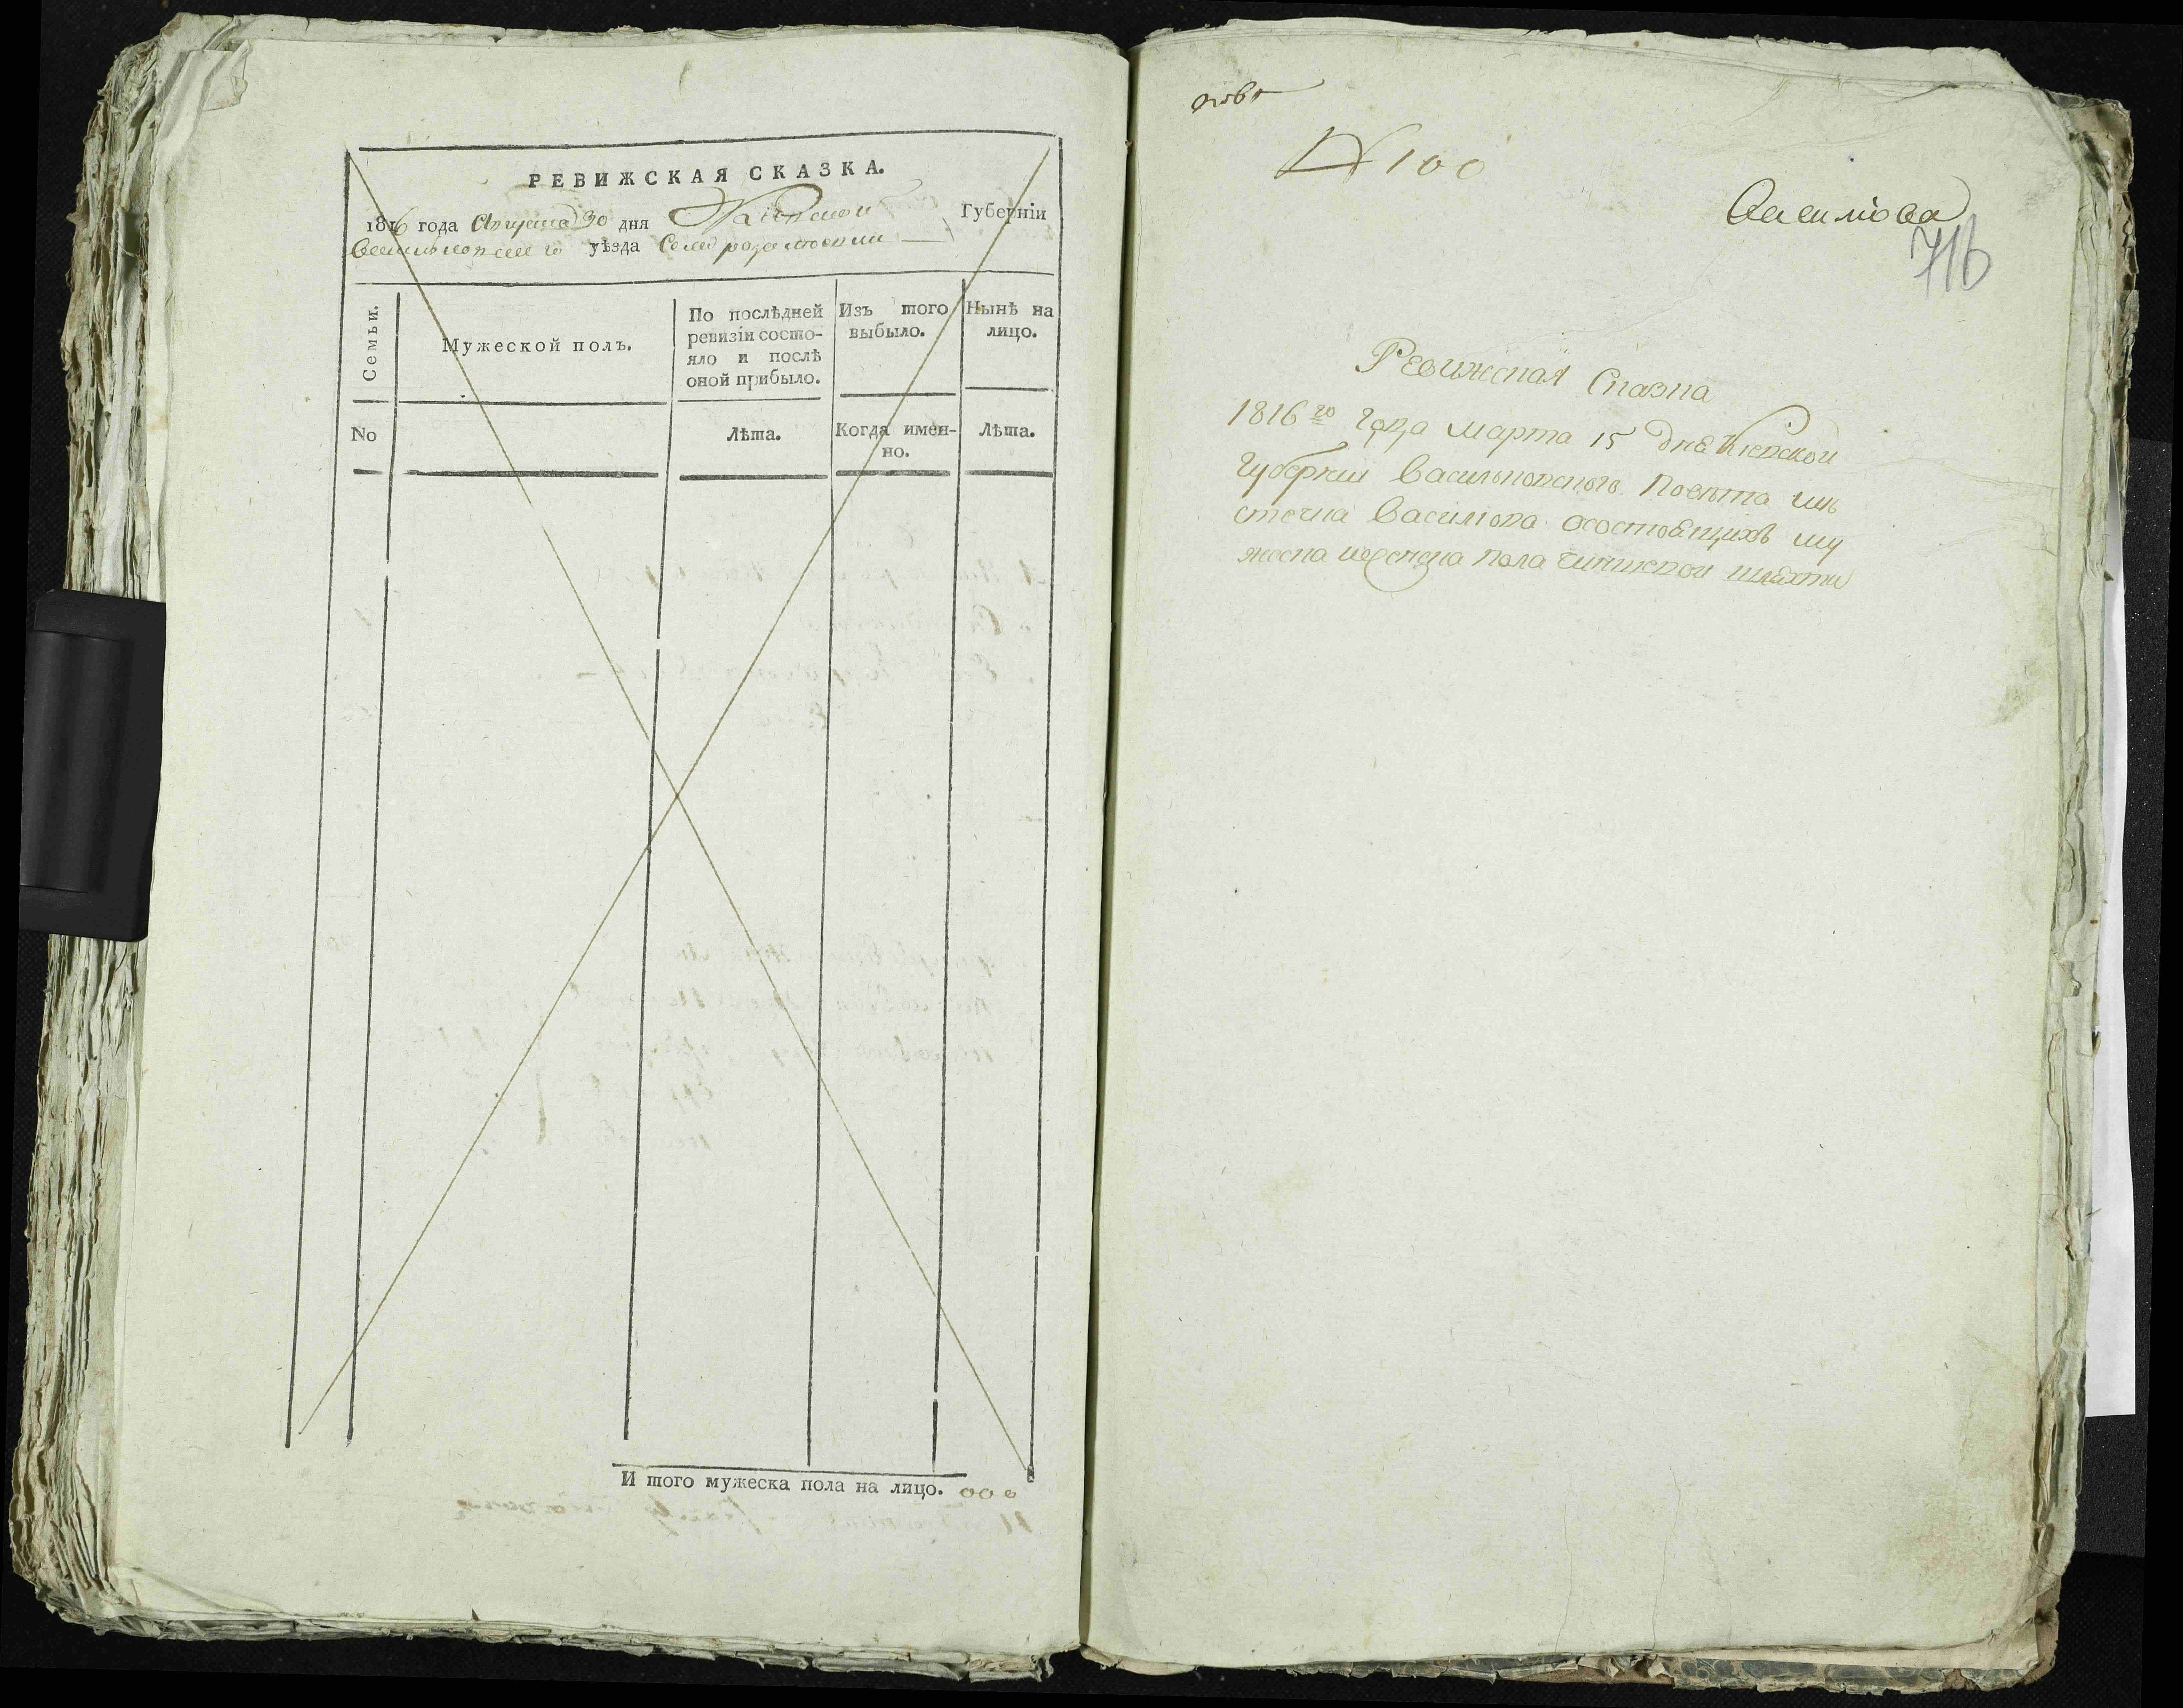 РЕВИЖСКАЯ СКАЗКА.
1816 года Апреля 30 дня Киевской Губерніи
Васильковского уѣзда Села
Семьи.
Мужеской полъ.
По послѣдней ревизіи состо-
яло и послѣ
оной прибыло.
Изъ того
выбыло.
Нынѣ на
лицо.
No
Лѣта.
Когда имен-
но.
Лѣта.
И того мужеска пола на лицо. 000
№ 100
Василіова
716
Ревижская Сказка
1816го года марта 15 дне Киевской
Губернии Васильковского Повѣта мѣ
стечка Василиова осостоящихъ му
жеска иженска пола чиншевой шляхти